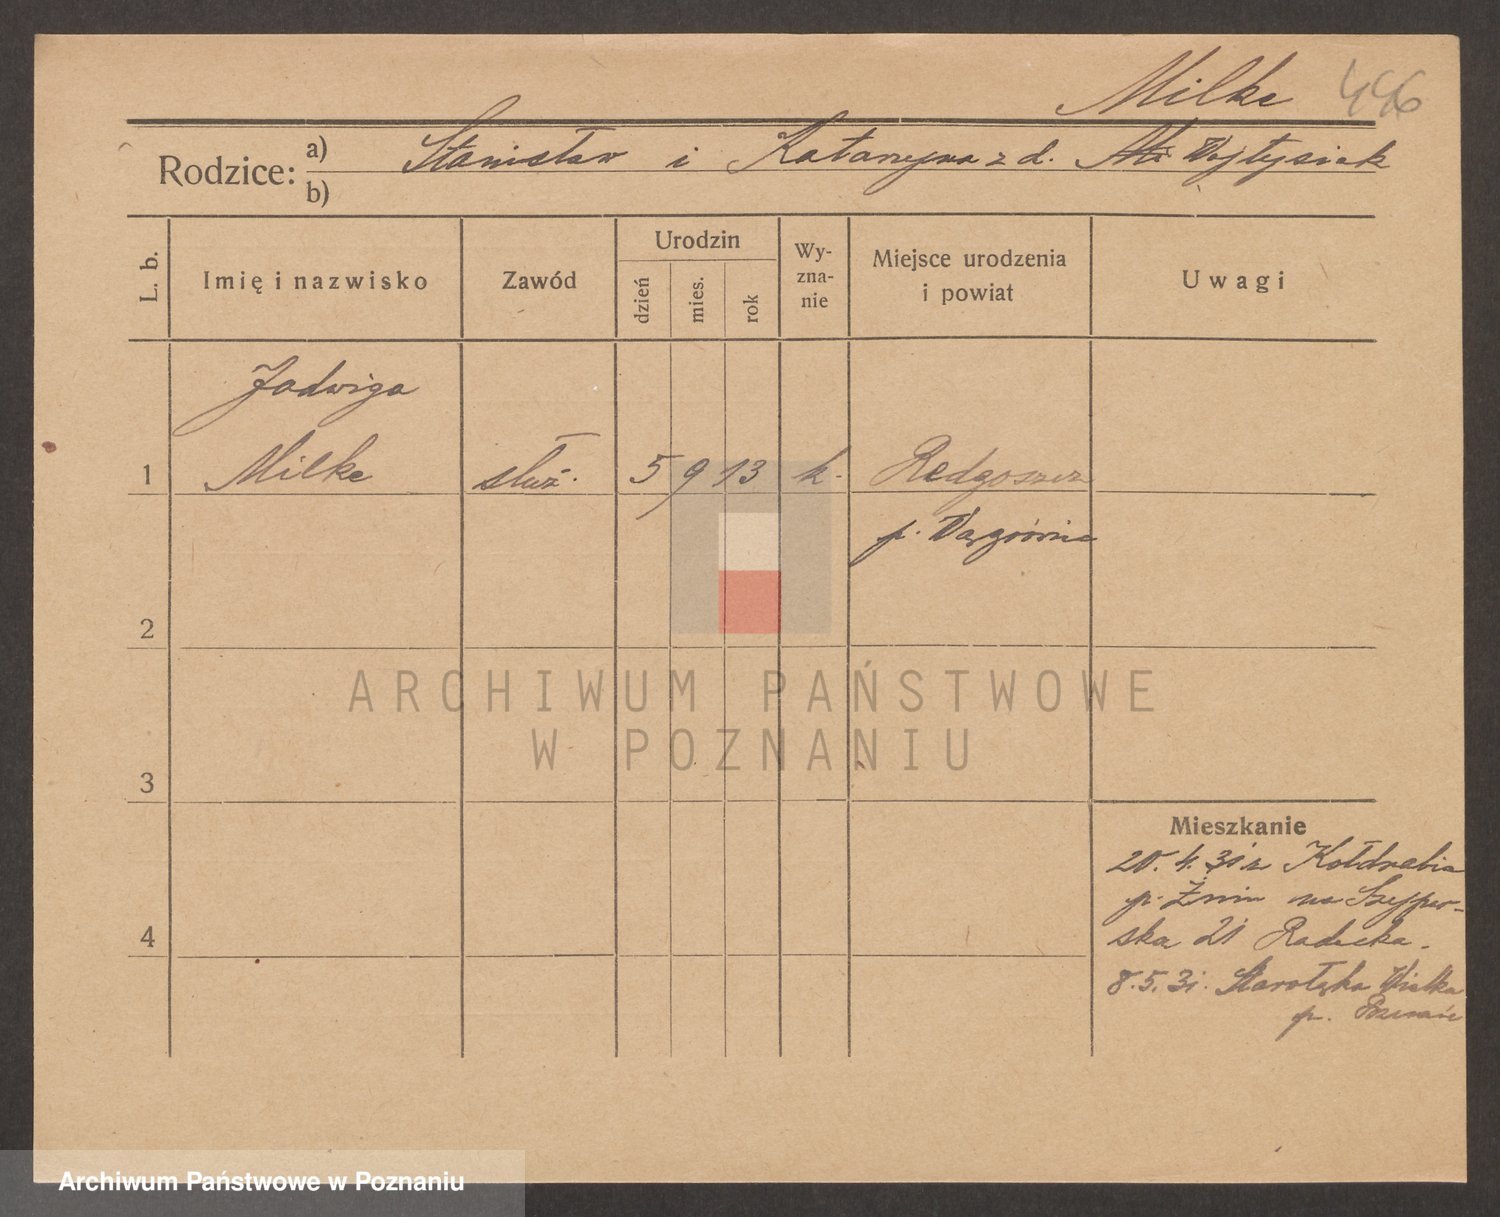 Milke 496
Rodzice: a) Stanisław i Katarzyna z d. Wojtysiak
b)
L. b.
Imię i nazwisko
Zawód
Urodzin
dzień
mies.
rok
Wy-
zna-
nie
Miejsce urodzenia
i powiat
Uwagi
Jadwiga
1 Milke służ. 5 9 13 k. Redgoszcz
p. Wągrówiec
2
ARCHIWUM PAŃSTWOWE
W POZNANIU
3
Mieszkanie
20. 4. 31 z Kołdrabia
p. Żnin na Szyper-
ska 21 Radecka.
4
8.5.31. Starołęka Wielka
p. Poznań
Archiwum Państwowe w Poznaniu